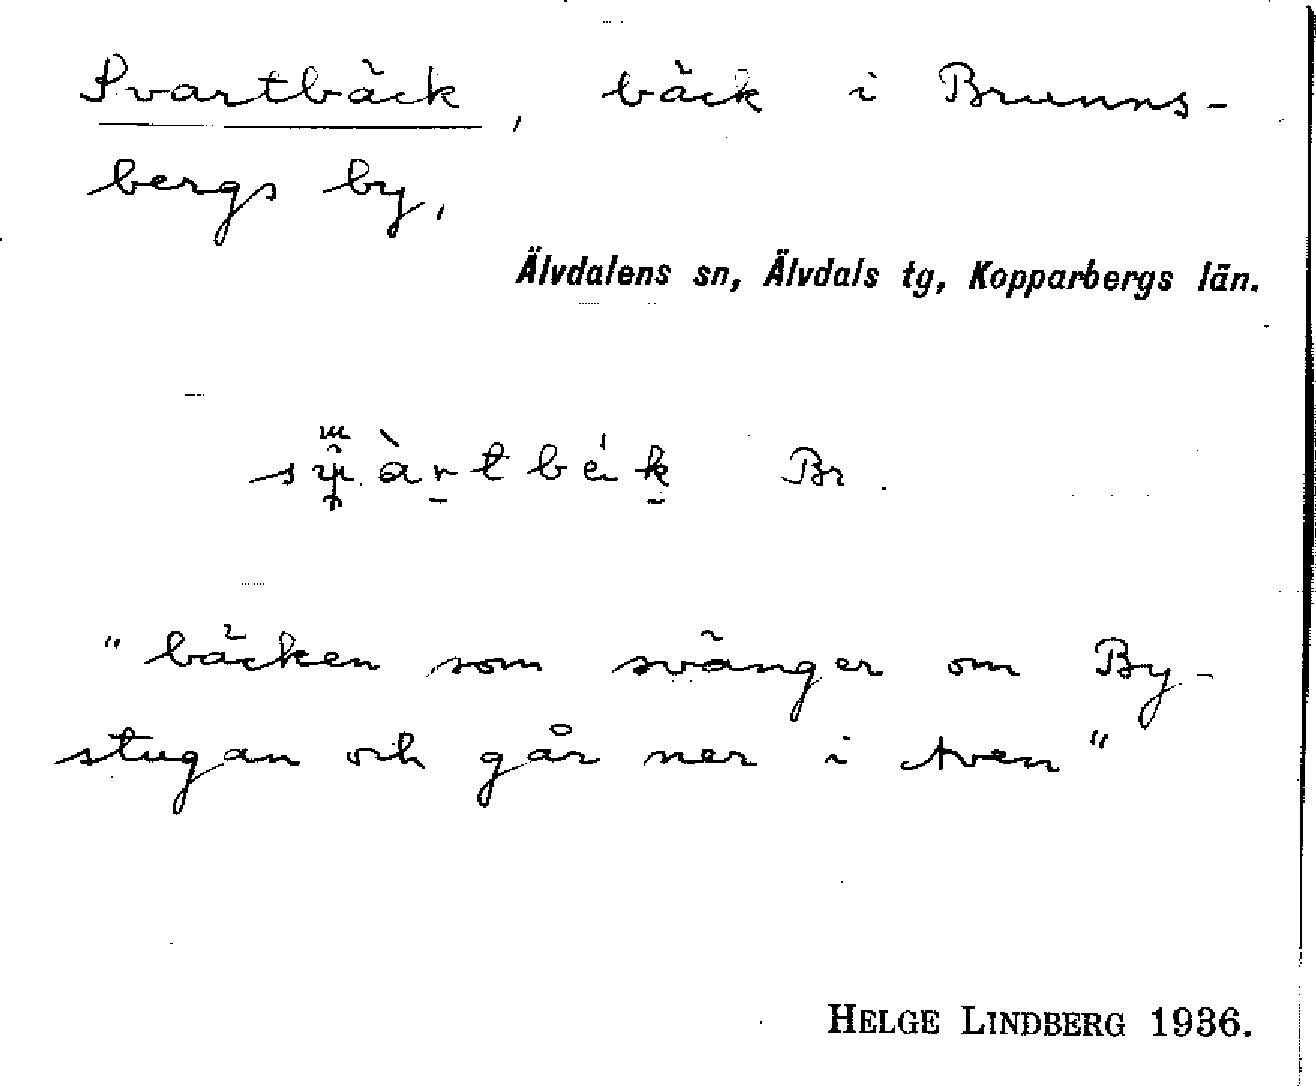 Svartbäck, bäck i Brunns-
bergs by,
Älvdalens sn, Älvdals tg, Kopparbergs län.
Br.
"bäcken som svänger om By-
stugan och går ner i Aven"
HELGE LINDBERG 1936.